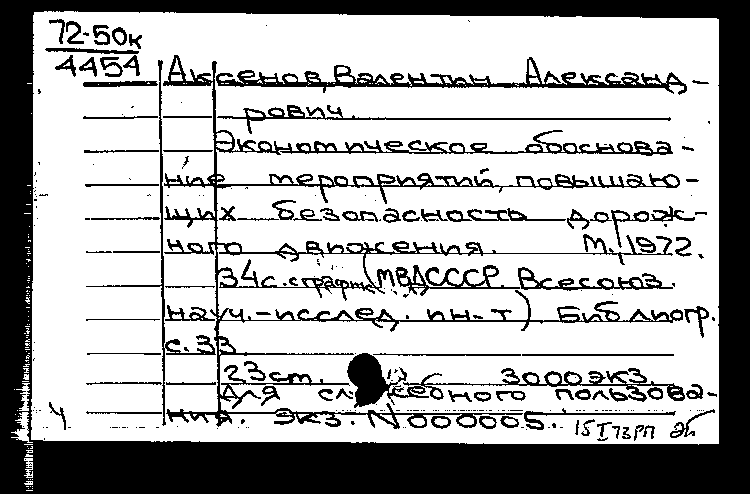 72-50к
4454
Аксенов, Валентин Александ-
рович.
Экономическое обоснова-
ние мероприятий, повышаю-
щих безопасность дорож-
ного движения. М., 1972.
34 с. с график. (МВД СССР. Всесоюз.
науч.-исслед. ин-т) Библиогр.
с. 33.
23 ст. 3000 экз.
Для служебного пользова-
ния. Экз. N 000005.
Ч 15 I 73 РП